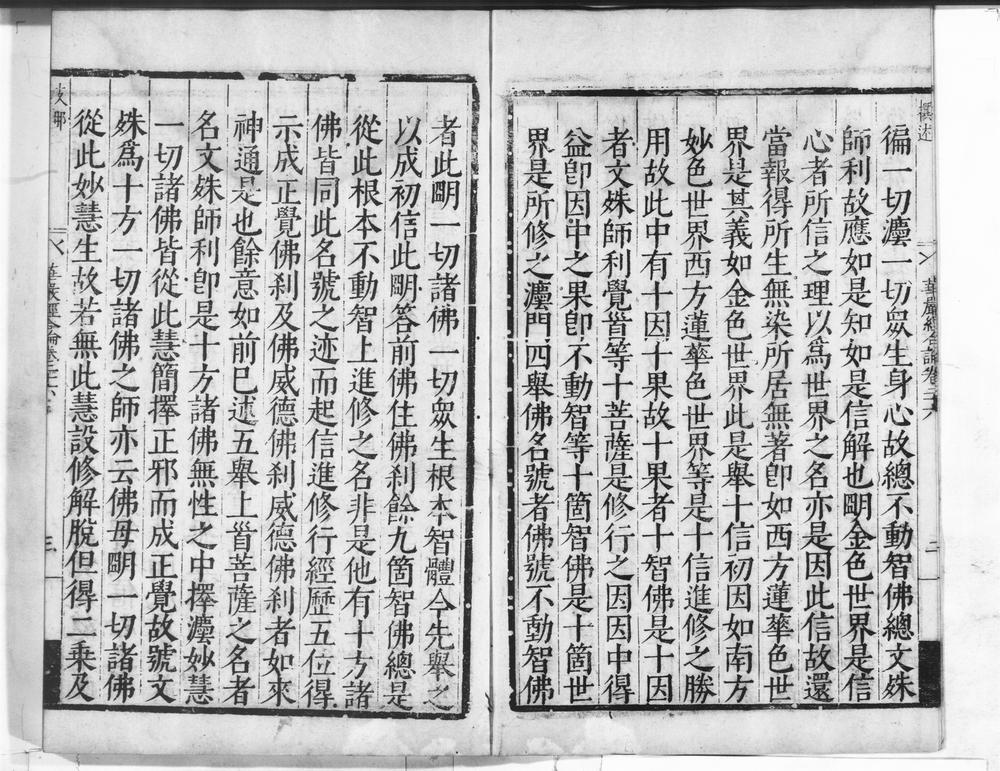 徧一切灋一切眾生身心故總不動智佛總文殊
師利故應如是知如是信解也明金色世界是信
心者所信之理以為世界之名亦是因此信故還
當報得所生無染所居無著即如西方蓮華色世
界是其義如金色世界此是舉十信初因如南方
妙色世界西方蓮華色世界等是十信進修之勝
用故此中有十因十果故十果者十智佛是十因
者文殊師利覺首等十菩薩是修行之因因中得
益即因中之果即不動智等十箇智佛是十箇世
界是所修之灋門四舉佛名號者佛號不動智佛
者此明一切諸佛一切眾生根本智體今先舉之
以成初信此明答前佛住佛剎餘九箇智佛總是
從此根本不動智上進修之名非是他有十方諸
佛皆同此名號之迹而起信進修行經歷五位得
示成正覺佛剎及佛威德佛剎威德佛剎者如來
神通是也餘意如前已述五舉上首菩薩之名者
名文殊師利即是十方諸佛無性之中擇灋妙慧
一切諸佛皆從此慧簡擇正邪而成正覺故號文
殊為十方一切諸佛之師亦云佛母明一切諸佛
從此妙慧生故若無此慧設修解脫但得二乘及
華嚴經合論卷二十六
二
三